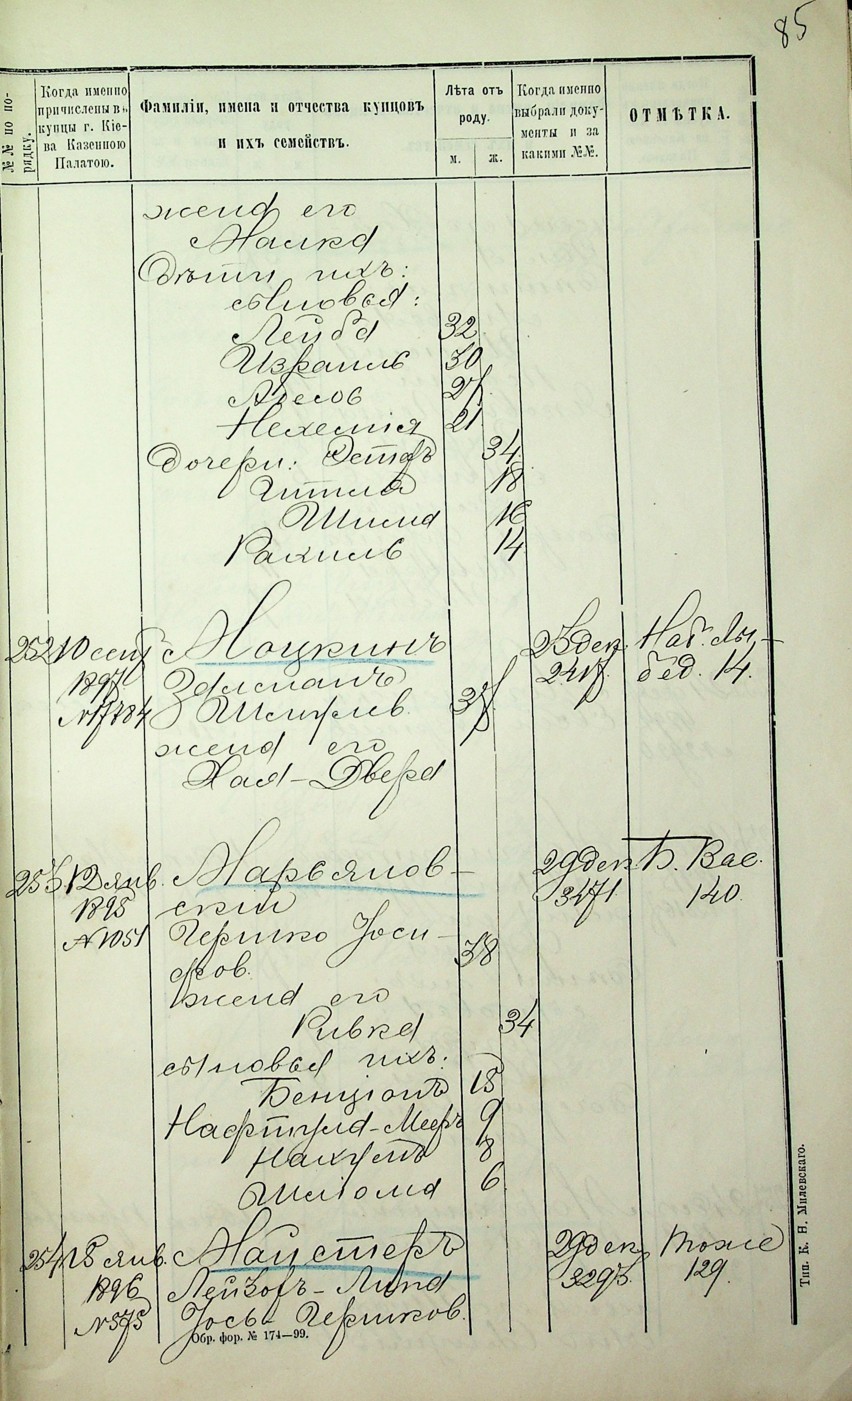 85
№№ по по-
рядку.
Когда именно
причислены въ
купцы г. Кіе-
ва Казенною
Палатою.
Фамиліи, имена и отчества купцовъ
и ихъ семействъ.
Лѣта отъ
роду.
м.
ж.
Когда именно
выбрали доку-
менты и за
какими №№.
ОТМѢТКА.
жена его
Малка
Дѣти ихъ:
сыновья:
Лейба 32
Израиль 30
27
Нехемія 21
Дочери: Эстеръ 34
Гитля 18
16
Рахиль 14
252 10 сент. Моцкинъ 23 дек. Наб. Лы-
1897 Залманъ 2417 бед. 14.
№17784 Шмулев. 37
жена его
Хая-Двера
253 12 янв. Марьянов- 29 дек. Б. Вас.
1898 скій 3471 140
№1051 Гершко Іоси-
фов. 38
жена его
Ривка 34
сыновья ихъ:
Бенціонъ 15
Нафтула-Мееръ 9
Нахумъ 8
Шліома 6
254 18 янв. Майстеръ 29 дек. тоже
1896 Лейзоръ-Липа 3293 129.
№575 Іось-Гершков.
Обр. фор. № 174—99.
Тип. К. Н. Милевскаго.